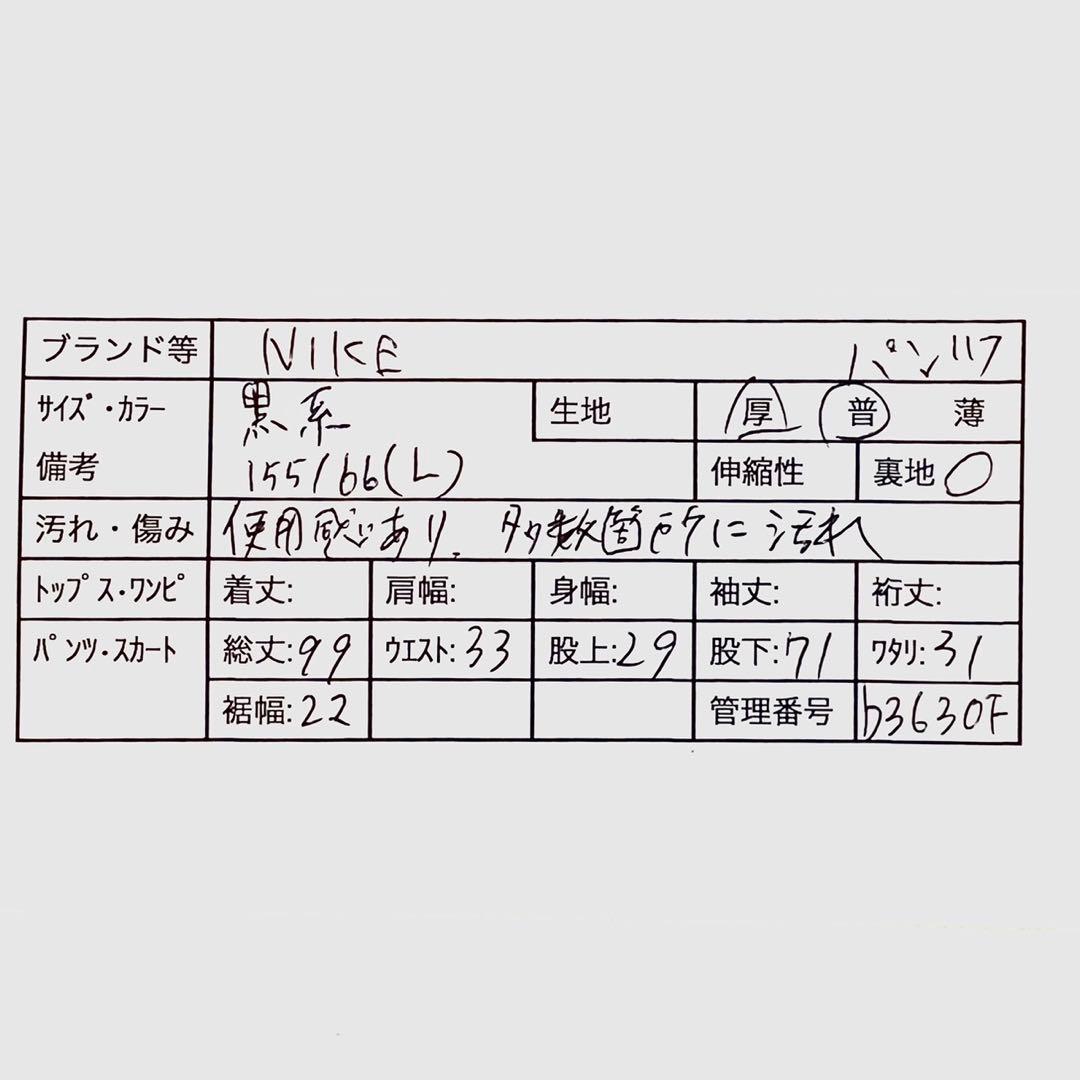 ブランド等 NIKE パンツ
ｻｲｽﾞ・ｶﾗｰ 黒系 生地 厚 普 薄
備考 155/66(L) 伸縮性 裏地 〇
汚れ・傷み 使用感あり、多数箇所に汚れ
ﾄｯﾌﾟｽ・ﾜﾝﾋﾟ 着丈: 肩幅: 身幅: 袖丈: 裄丈:
ﾊﾟﾝﾂ・ｽｶｰﾄ 総丈:99 ｳｴｽﾄ:33 股上:29 股下:71 ﾜﾀﾘ:31
裾幅:22 管理番号 b3630F